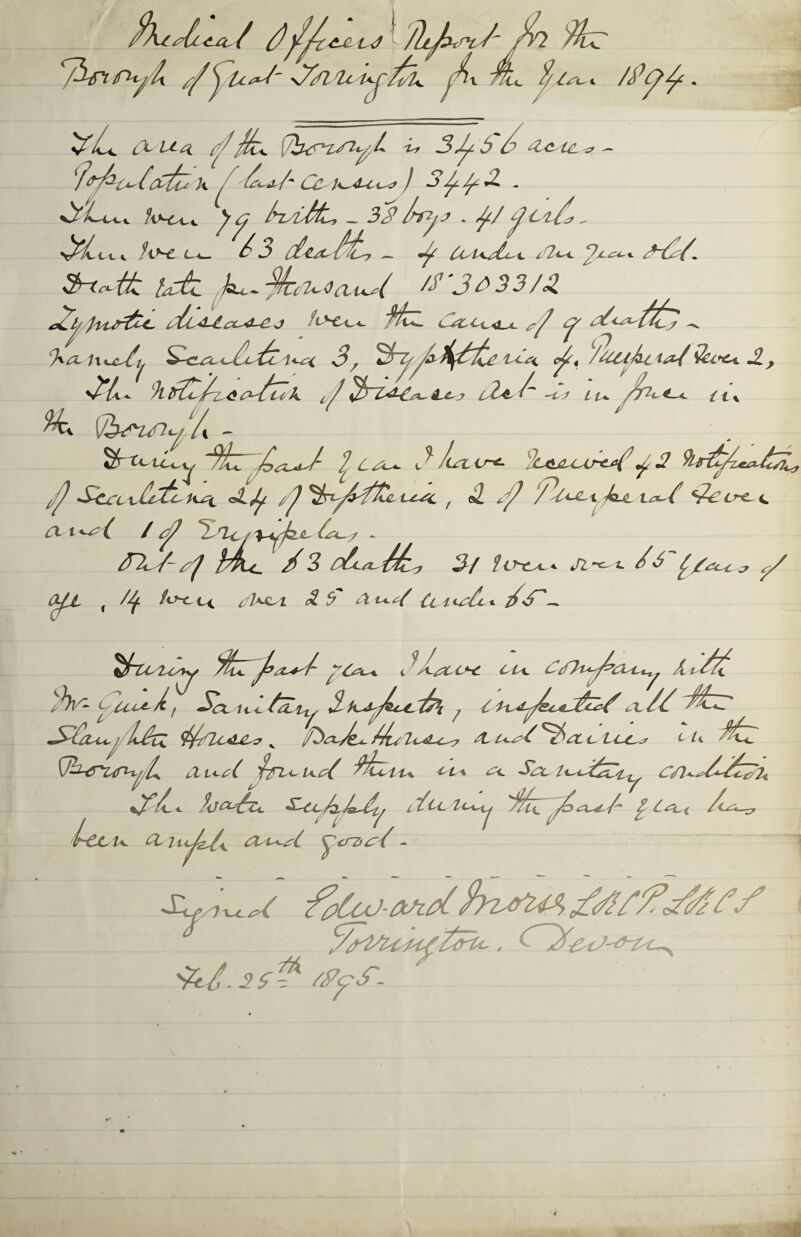 Medical Officers Report for the
Borough of Great Torrington for the Year 1894.
The area of the Borough is 3456 acres -
Population (last Census) 3442 -
There were 79 births - 38 boys - 41 girls -
There were 63 deaths - 4 under one year old.
Death rate per thousand 18.30331/2
Zymotic diseases were the cause of 9 deaths -
namely Scarletina 3, Dyptheria 4, Puerperal Fever 2,
The Notification of Diseases Act is in force in
the Borough -
During the past year I have received 42 Notifications
of Scarletina 24 of Diptheria, 2 of Puerperal Fever
and 1 of Erysipelas -
Out of the 63 deaths 31 were over 65 years of
age, 14 were over 25 and under 65 -
During the past year I have in company with
Mr Quick, Sanitary Inspector, inspected all the
Slaughter Houses, Bake Houses and Dairies in the
Borough and found them in a Sanitary condition
The water supply during the past year has
been ample and good -
Signed Edward Morse LRCP. LRCS
Torrington. Devon
Feb. 25th 1895 -